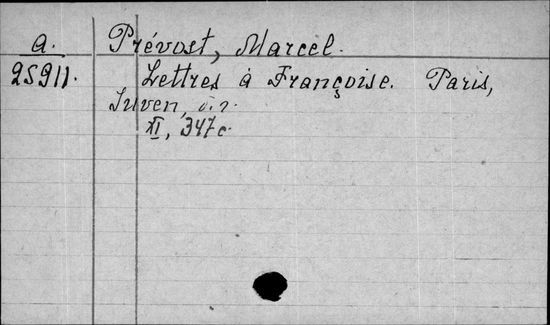 a. Prévost, Marcel.
25911. Lettres à Françoise. Paris,
Juven, б.г.
XI, 347 с.